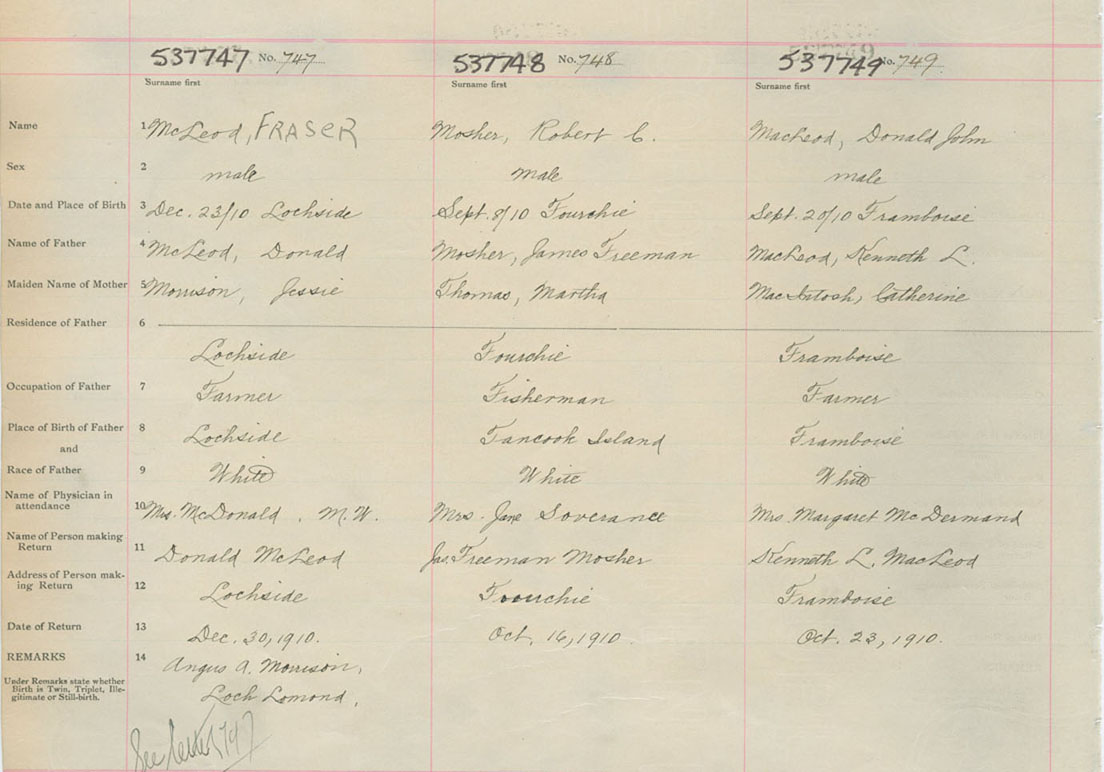 537747 No. 747 537748 No. 748 537749 No. 749
Surname first Surname first Surname first
Name 1 McLeod, FRASER Mosher, Robert C. MacLeod, Donald John
Sex 2 male male male
Date and Place of Birth 3 Dec. 23/10 Lochside Sept. 8/10 Fourchie Sept. 20/10 Framboise
Name of Father 4 McLeod, Donald Mosher, James Freeman MacLeod, Kenneth L.
Maiden Name of Mother 5 Morrison, Jessie Thomas, Martha MacIntosh, Catherine
Residence of Father 6
Lochside Fourchie Framboise
Occupation of Father 7 Farmer Fisherman Farmer
Place of Birth of Father 8 Lochside Tancook Island Framboise
and
Race of Father 9 White White White
Name of Physician in
attendance 10 Mrs. McDonald, M.W. Mrs. Jane Soverance Mrs. Margaret McDermand
Name of Person making
Return 11 Donald McLeod Jas. Freeman Mosher Kenneth L. MacLeod
Address of Person mak-
ing Return 12 Lochside Fourchie Framboise
Date of Return 13 Dec. 30, 1910. Oct. 16, 1910. Oct. 23, 1910.
REMARKS 14 Angus A. Morrison,
Under Remarks state whether
Birth is Twin, Triplet, Ille-
gitimate or Still-birth.
Loch Lomond.
See letter 747